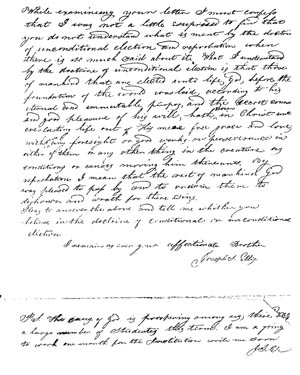 While examining your letter I must confess
that I was not a little surprised to find that
you do not understand what is ment by the doctrin
of unconditional election and reprobation when
there is so much said about it. What I understand
by the doctrine of unconditional election is that those
of mankind that are elected unto life, God, before the
foundation of the world was laid, according to his
eternal and immutable purpos, and the secret counsel
and good pleasure of his will, hath, in Christ unto
everlasting life out of his mear free grace and love,
without any foresight of good works, or perseverance in
either of them or any other thing in the creature as
conditions or causes moving him thereunto. By
reprobation I mean that the rest of mankind God
was pleased to pass by and to ordain them to
dishonor and wrath for there sins.
to answer the above and tell me whether you
believe in the doctrine of conditional or unconditional
election
I remain as ever your affectionate Brother
Joseph S.
P.S. The cause of God is prospering among us, there is
a large number of Students this term. I am a going
to work one month for the Institution write me down